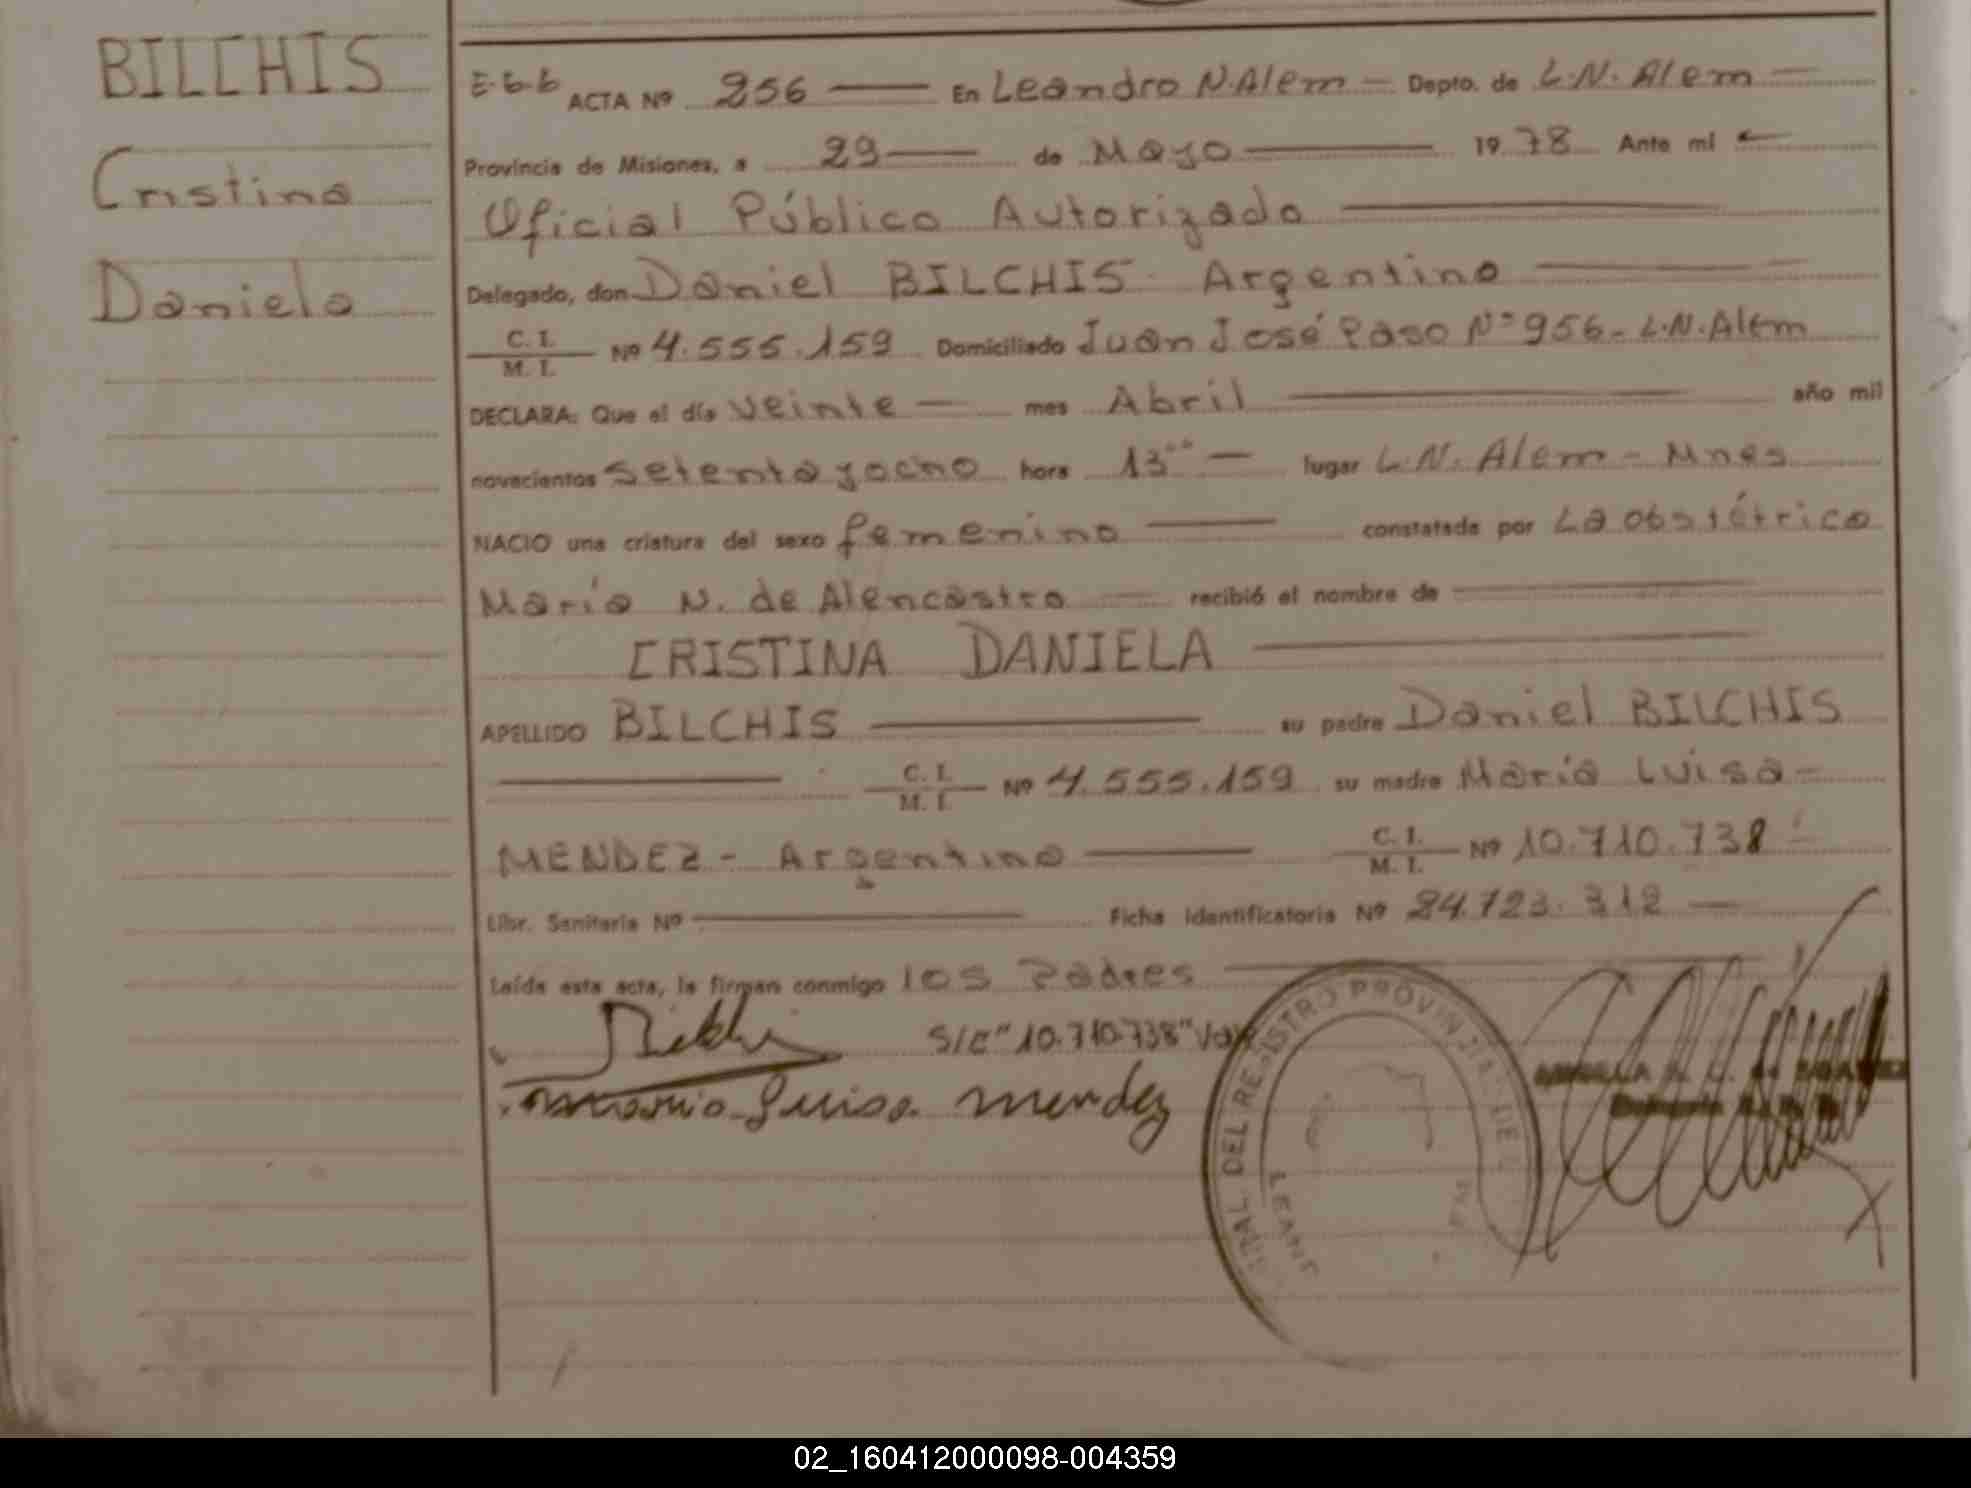 BILCHIS
Cristina
Daniela
E-6-6 ACTA Nº 256 — En Leandro N. Alem — Depto. de L.N. Alem —
Provincia de Misiones, a 29 — de Mayo — 1978 Ante mi
Oficial Público Autorizado —
Delegado, don Daniel BILCHIS - Argentino —
C. I. / M. I. Nº 4.555.159 Domiciliado Juan José Paso Nº 956 - L.N. Alem
DECLARA: Que el día veinte — mes Abril — año mil
novecientos setenta y ocho hora 13°° — lugar L.N. Alem - Mnes
NACIO una criatura del sexo femenino — constatada por La obstétrica
María N. de Alencastro — recibió el nombre de —
CRISTINA DANIELA —
APELLIDO BILCHIS — su padre Daniel BILCHIS
— C. I. / M. I. Nº 4.555.159 su madre María Luisa —
MENDEZ - Argentina — C. I. / M. I. Nº 10.710.738
Libr. Sanitaria Nº — Ficha Identificatoria Nº 24.723.312 —
Leída esta acta, la firman conmigo los Padres —
S/C "10.710.738" Vale
Maria Luisa Mendez
DEL REGISTRO PROVINCIAL DE
LEAND
02_160412000098-004359